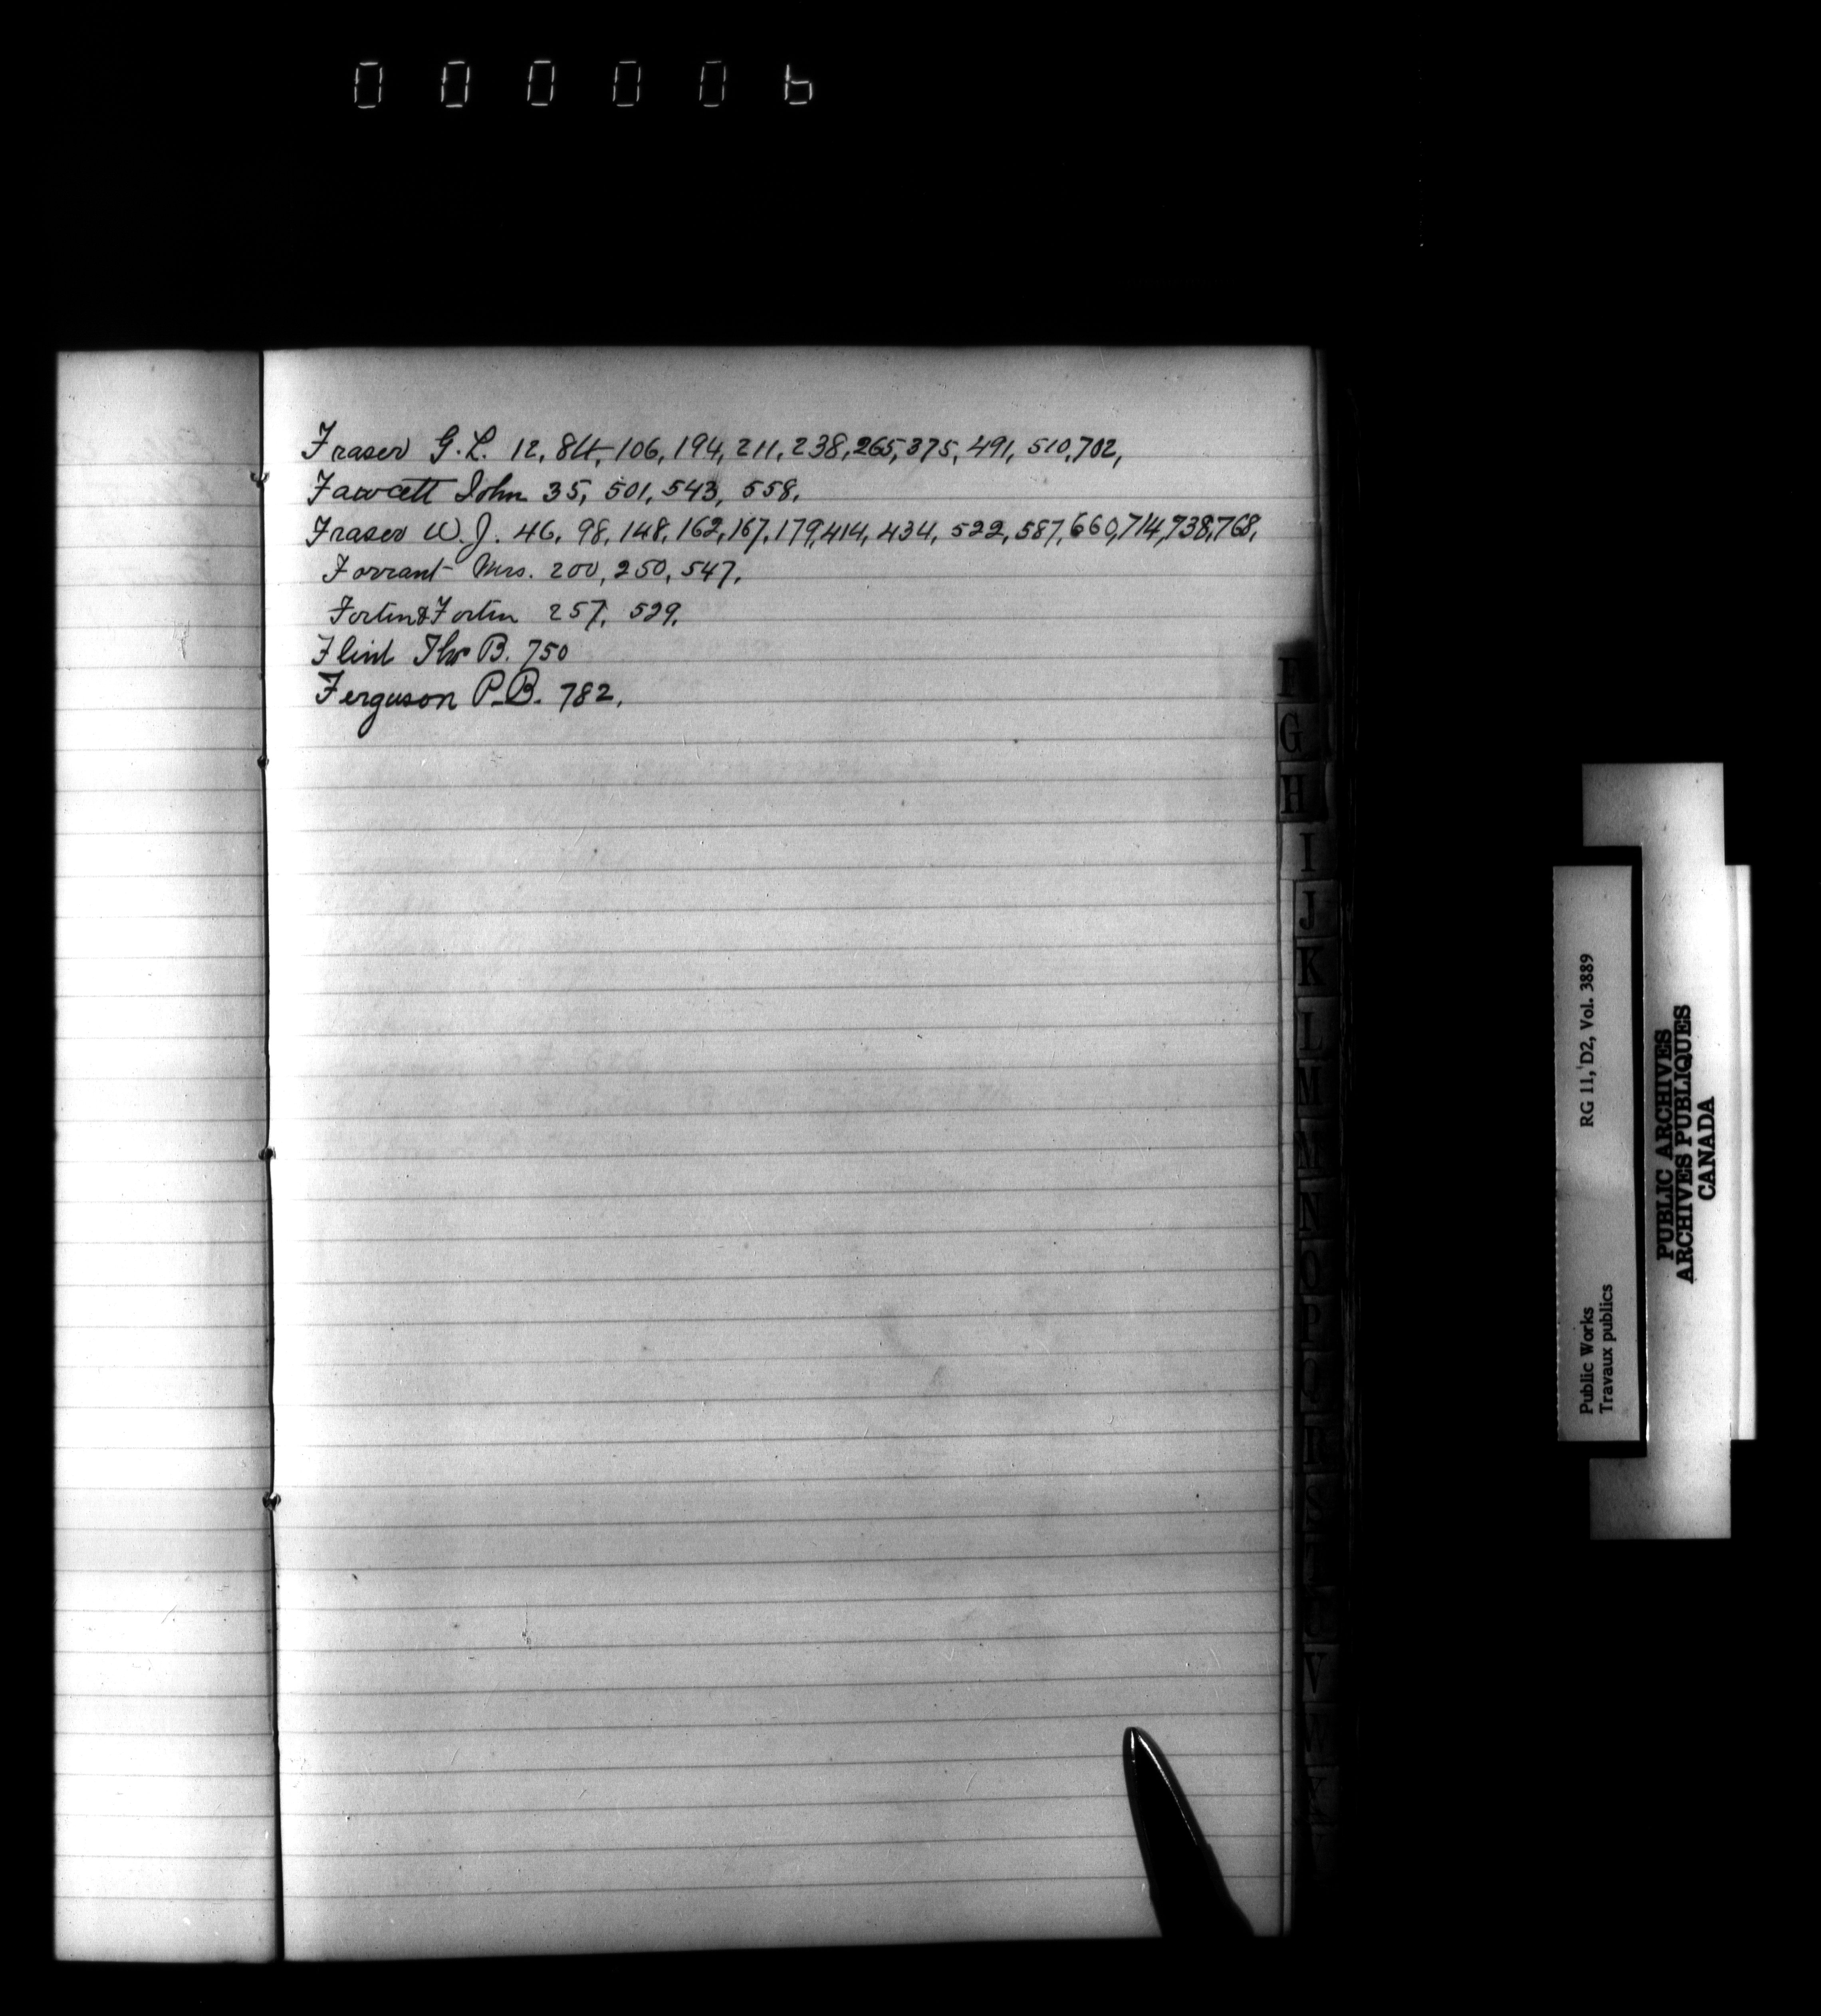 000006
Fraser G. L. 12, 84, 106, 194, 211, 238, 265, 375, 491, 510, 702,
Fawcett John 35, 501, 543, 558,
Fraser W. J. 46, 98, 148, 162, 167, 179, 414, 434, 522, 587, 660, 714, 738, 768,
Forrant Mrs. 200, 250, 547,
Fortin & Fortin 257, 529,
Flint Thos B. 750
Ferguson P. B. 782,
F
G
H
I
J
K
L
M
M
N
O
P
Q
R
S
T
V
RG 11, D2, Vol. 3889
Public Works
Travaux publics
PUBLIC ARCHIVES
ARCHIVES PUBLIQUES
CANADA